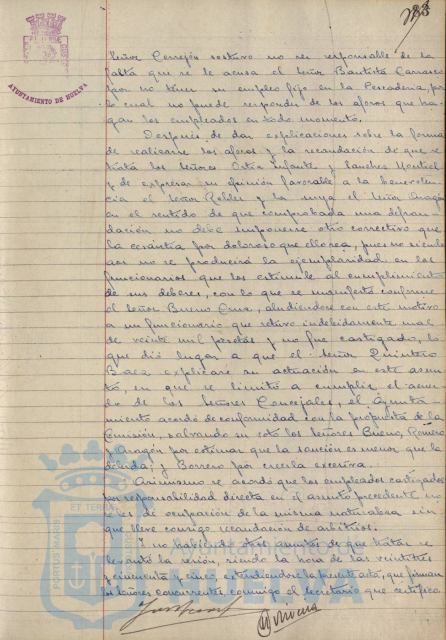 283
AYUNTAMIENTO DE HUELVA
Señor Cerrejón sostuvo no ser responsable de la
falta que se le acusa el señor Bautista Carrasco
por no tener su empleo fijo en la Pescadería, por
lo cual no puede responder de los aforos que ha-
gan los empleados en todo momento.
Después de dar explicaciones sobre la forma
de realizarse los aforos y la recaudación de que se
trata los señores Ortiz Infante y Sanchez
y de expresar su opinión favorable a la benevolen-
cia el señor Robles y la suya el señor Aragón
en el sentido de que comprobada una defrau-
dación no debe imponerse otro correctivo que
la cesantía por doloroso que ello sea, pues no siendo
así no se producirá la ejemplaridad en los
funcionarios que los estimule al cumplimiento
de sus deberes, con lo que se manifestó conforme
el señor Bueno Cruz, aludiendose con este motivo
a un funcionario que retuvo indebidamente mas
de veinte mil pesetas y no fue castigado, lo
que dió lugar a que el señor Quintero
Baez explicase su actuación en este asun-
to, en que se limitó a cumplir el acuer-
do de los Señores Concejales, el Ayunta-
miento acordó de conformidad con la propuesta de la
Comisión, salvando su voto los señores Bueno, Romero
y Aragón por estimar que la sanción es menor que la
debida; y Borrero por creerla excesiva.
Asimismo se acordó que los empleados castigados
por responsabilidad directa en el asunto precedente no
de ocupación de la misma naturaleza sin
que lleve consigo recaudación de arbitrios.
Y no habiendo otros asuntos de que tratar se
levantó la sesión, siendo la hora de las veintitres
y cincuenta y cinco, extendiendose la presente acta, que firman
los señores concurrentes, conmigo el Secretario que certifico.
PORTUS MARIS
ET TERRAE
Ayuntamiento de
HUELVA